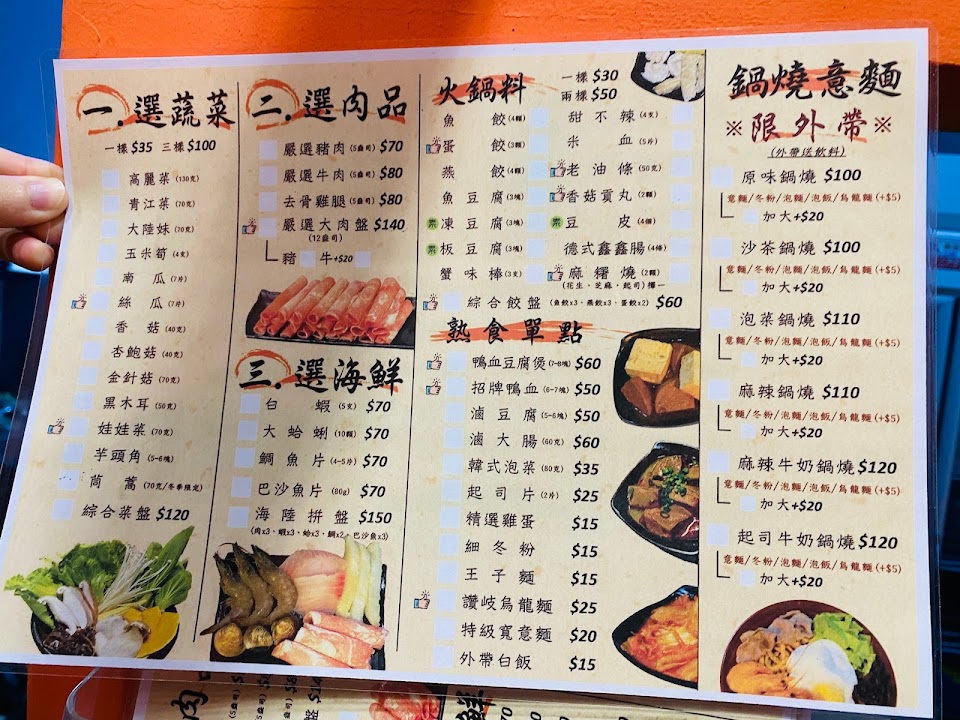 一.選蔬菜
一樣$35 三樣$100
高麗菜(130克)
青江菜(70克)
大陸妹(70克)
玉米筍(4支)
南瓜(7片)
絲瓜(7片)
香菇(40克)
杏鮑菇(40克)
金針菇(70克)
黑木耳(50克)
娃娃菜(70克)
芋頭角(5-6塊)
茼蒿(70克/冬季限定)
綜合菜盤$120
二.選肉品
嚴選豬肉(5盎司)$70
嚴選牛肉(5盎司)$80
去骨雞腿(5盎司)$80
嚴選大肉盤$140
(12盎司)
豬 牛+$20
三.選海鮮
白蝦(5支)$70
大蛤蜊(10顆)$70
鯛魚片(4-5片)$70
巴沙魚片(80g)$70
海陸拼盤$150
(肉x3、蝦x3、蛤x3、鯛x2、巴沙魚x3)
火鍋料
一樣$30
兩樣$50
魚餃(4顆)
蛋餃(3顆)
燕餃(4顆)
魚豆腐(3塊)
素 凍豆腐(3塊)
素 板豆腐(3塊)
蟹味棒(3支)
甜不辣(4支)
米血(5片)
老油條(50克)
香菇貢丸(2顆)
素 豆皮(4個)
德式鑫鑫腸(4條)
麻糬燒(2顆)
(花生、芝麻、起司)擇一
綜合餃盤(魚餃x3、燕餃x3、蛋餃x2)$60
熟食單點
鴨血豆腐煲(7-8塊)$60
招牌鴨血(6-7塊)$50
滷豆腐(5-6塊)$50
滷大腸(60克)$60
韓式泡菜(80克)$35
起司片(2片)$25
精選雞蛋$15
細冬粉$15
王子麵$15
讚岐烏龍麵$25
特級寬意麵$20
外帶白飯$15
鍋燒意麵
※限外帶※
(外帶送飲料)
原味鍋燒$100
意麵/冬粉/泡麵/泡飯/烏龍麵(+$5)
加大+$20
沙茶鍋燒$100
意麵/冬粉/泡麵/泡飯/烏龍麵(+$5)
加大+$20
泡菜鍋燒$110
意麵/冬粉/泡麵/泡飯/烏龍麵(+$5)
加大+$20
麻辣鍋燒$110
意麵/冬粉/泡麵/泡飯/烏龍麵(+$5)
加大+$20
麻辣牛奶鍋燒$120
意麵/冬粉/泡麵/泡飯/烏龍麵(+$5)
加大+$20
起司牛奶鍋燒$120
意麵/冬粉/泡麵/泡飯/烏龍麵(+$5)
加大+$20